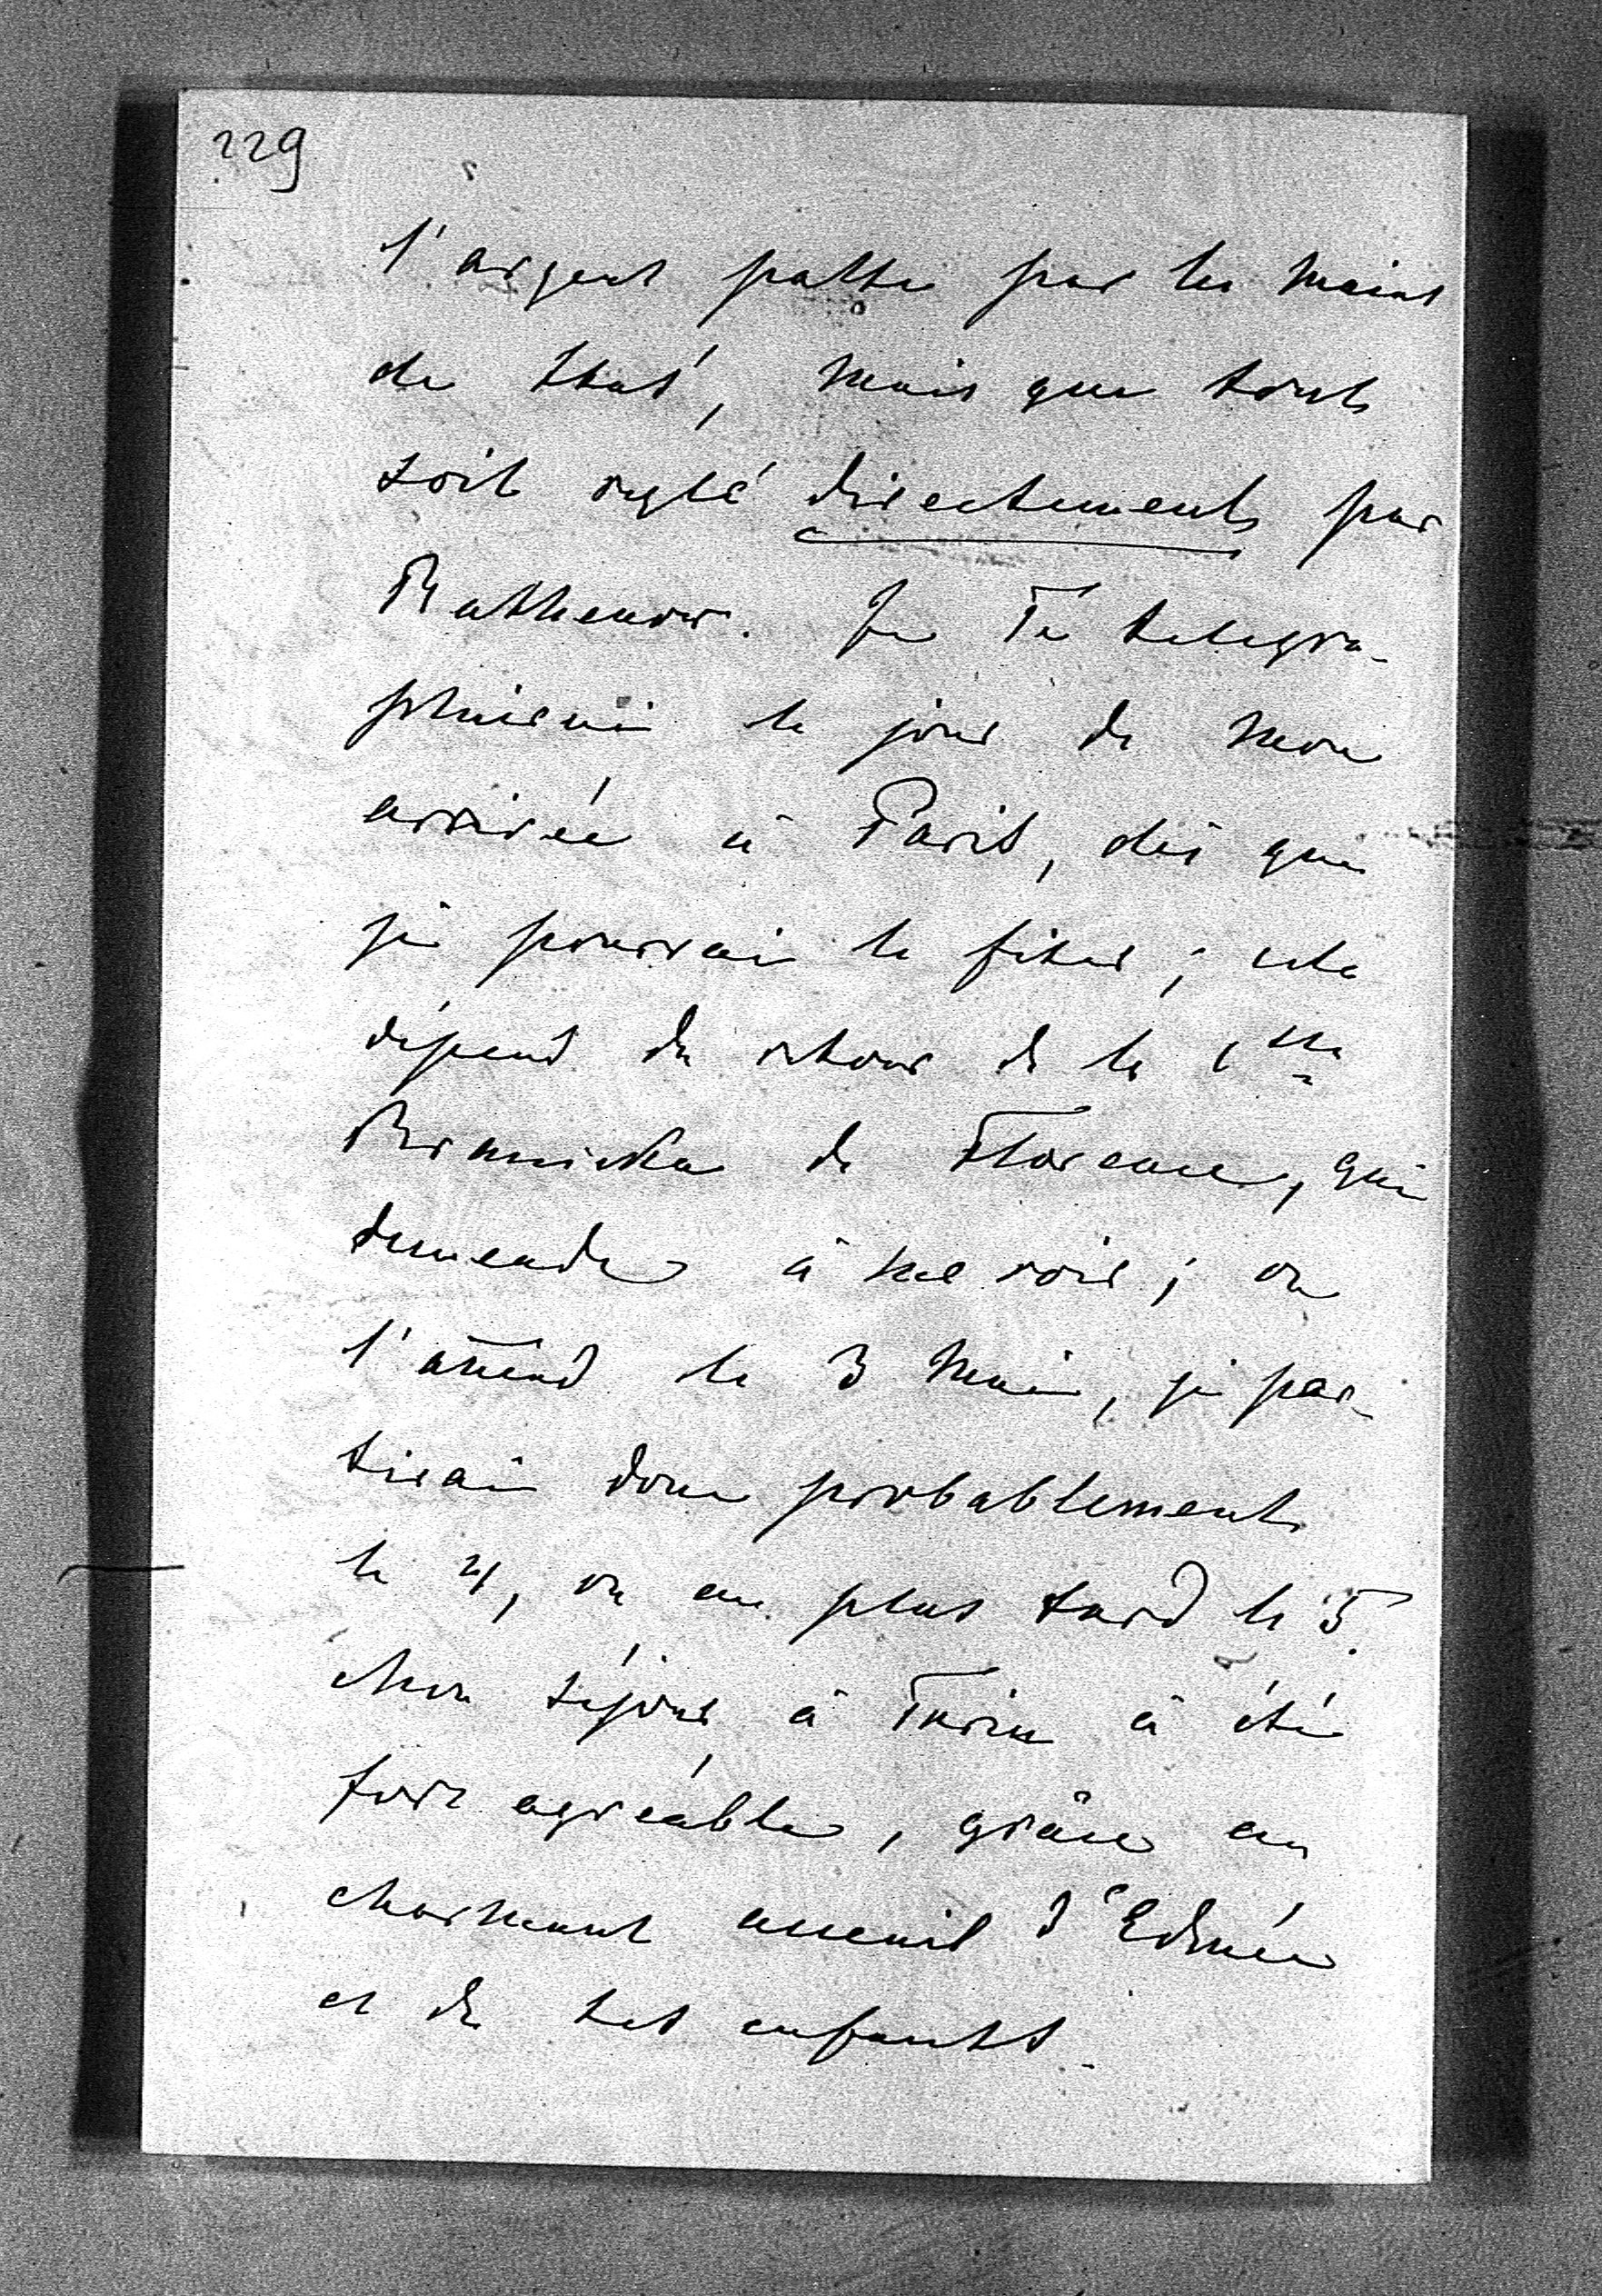 229
l'argent passe par les mains
de Stas', mais que tout
soit reglé directement par
Rathenow. Je Te telegra-
phierai le jour de mon
arrivée à Paris, dès que
je pourrai le fixer; cela
dépend du retour de la Ctsse
Branicka de Florence, qui
demande à me voir; on
l'attend le 3 Mai, je par-
tirai donc probablement
le 4, ou au plus tard le 5.
Mon séjour à Turin à été
fort agréable, grâce au
charmant accueil d'Edmée
et de ses enfants.